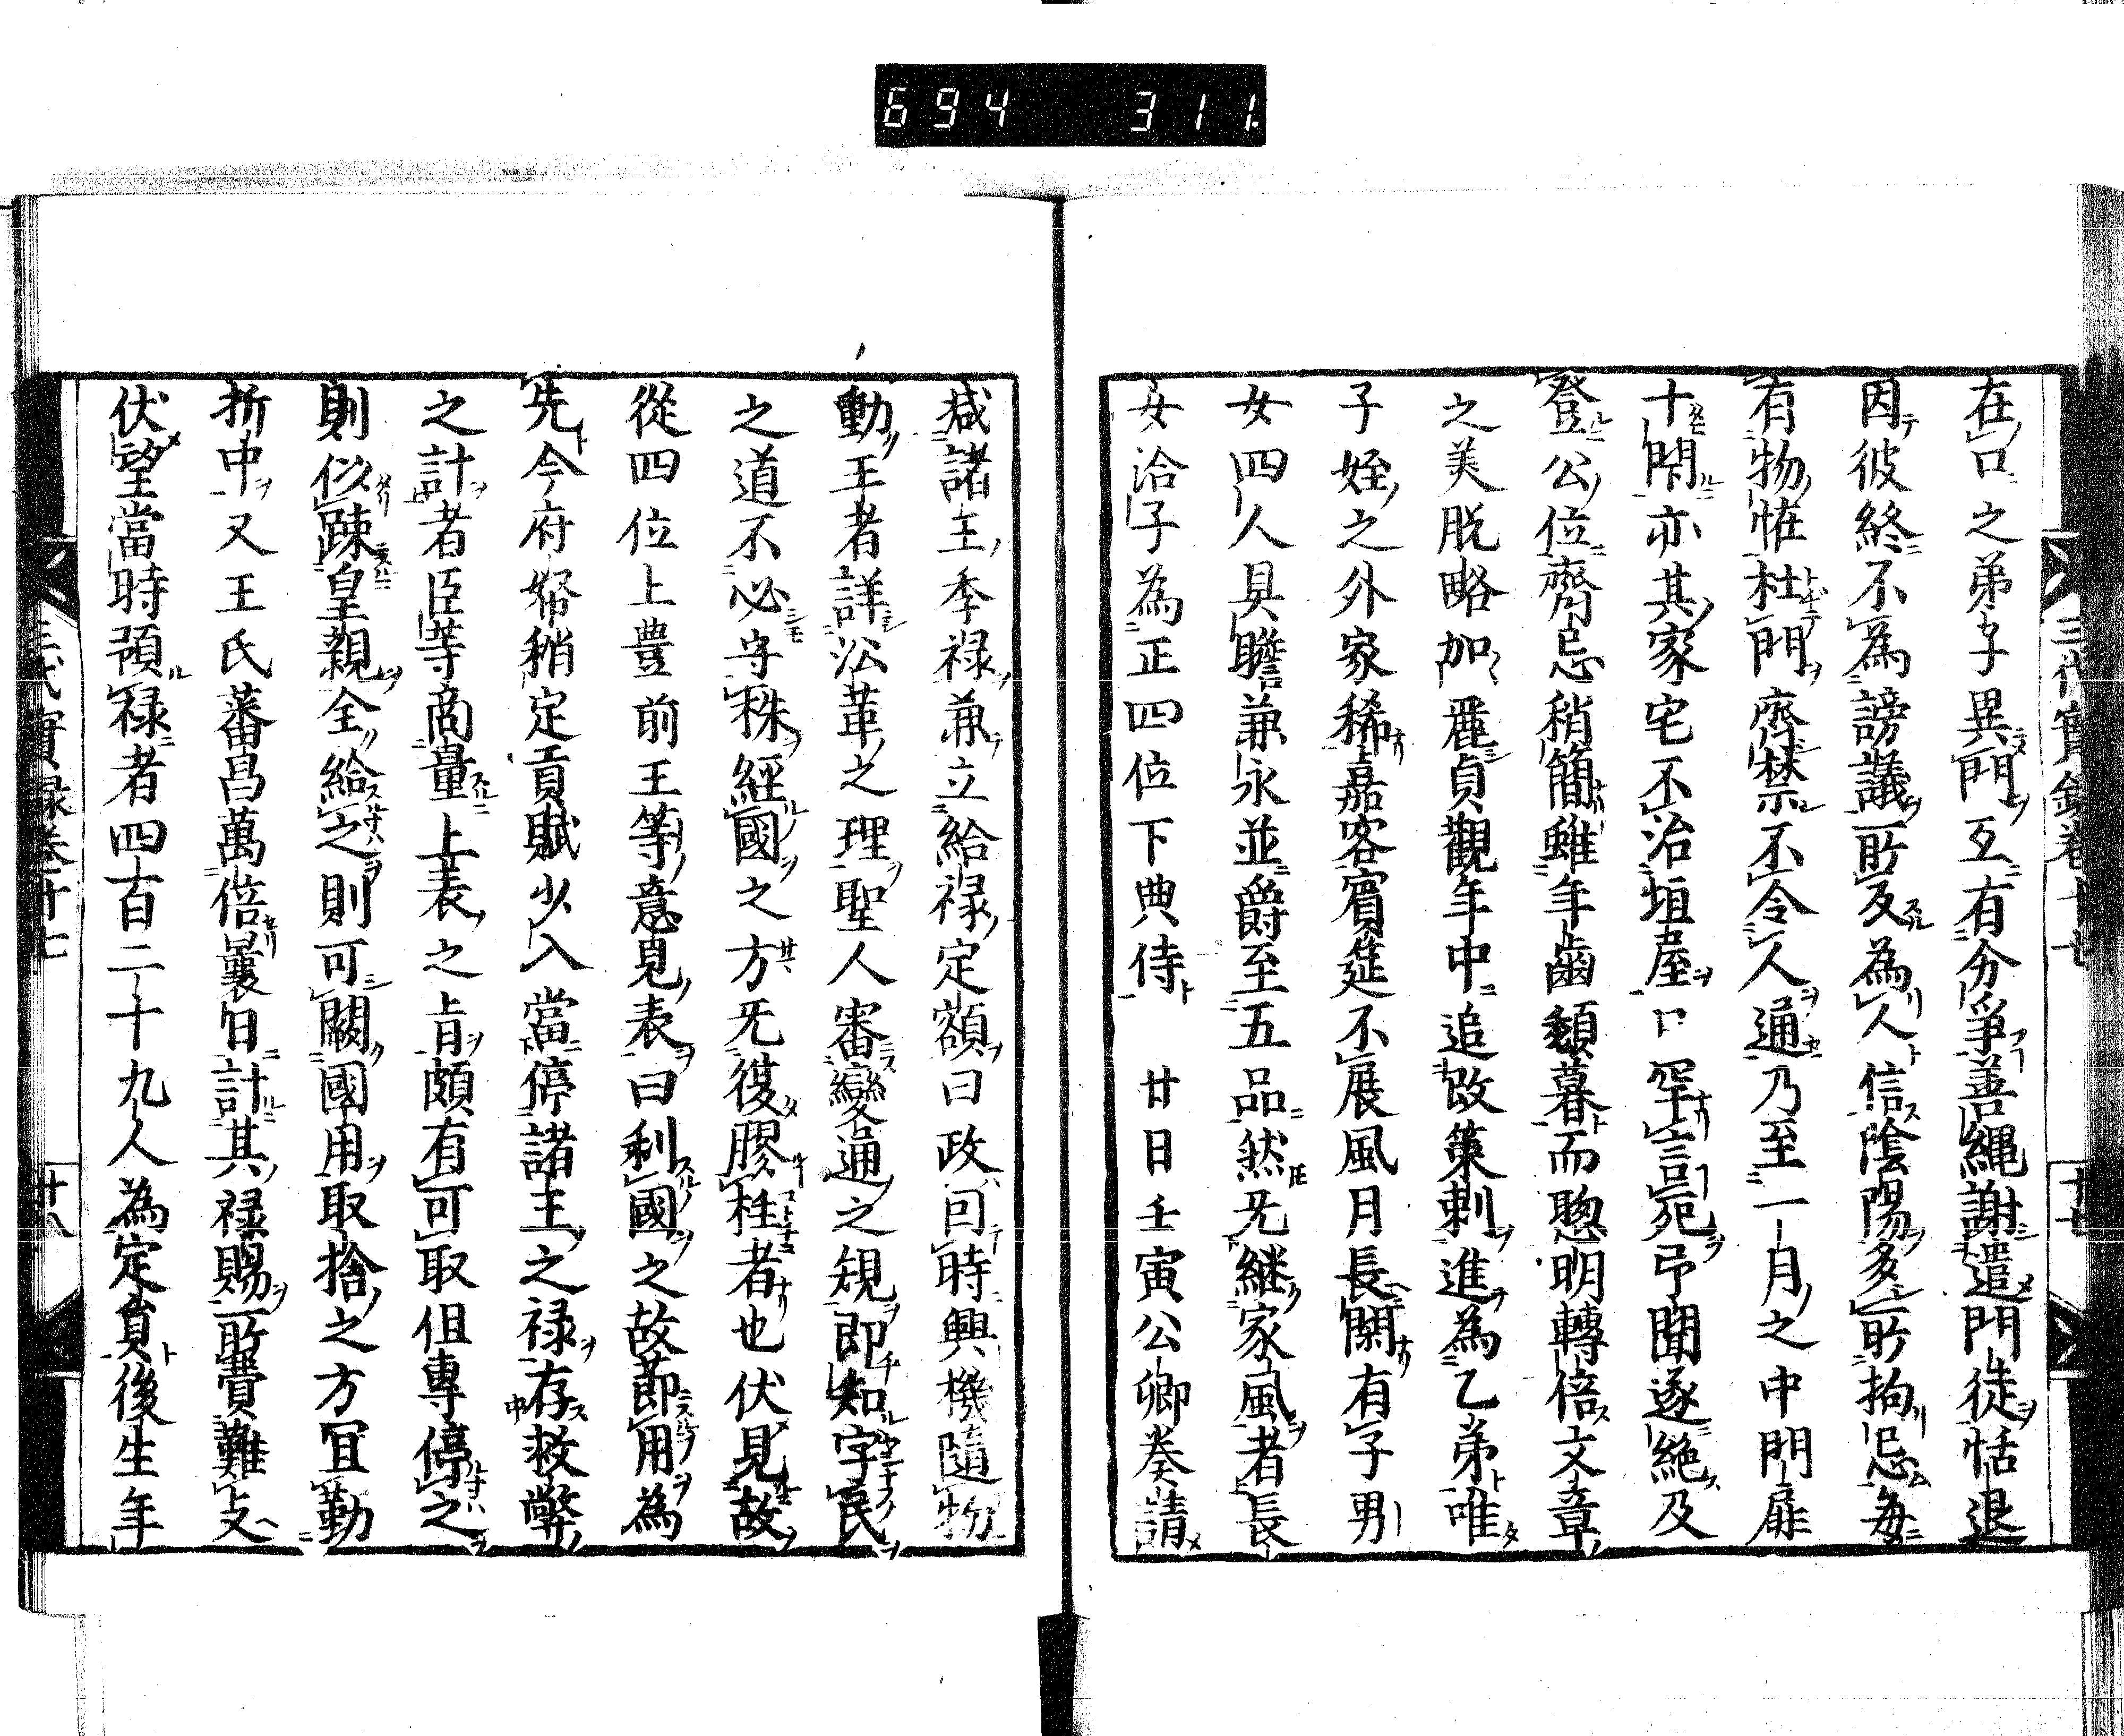 694 311
三代實録卷十七 十七
在口之弟子異門互有分爭善繩謝遣門徒恬退
因彼終不為謗議所及為人信陰陽多所拘忌每
有物恠杜門齊禁不令人通乃至一月之中門扉
十閇亦其家宅不治垣屋口罕言死弔聞遂絶及
登公位齊忌稍簡雖年齒頽暮而聰明轉倍文章
之美脱略加麗貞觀年中追改策判進為乙弟唯
子姪之外家稀嘉客賓筵不展風月長閑有子男
女四人具瞻兼永並爵至五品然旡継家風者長
女洽子為正四位下典侍 廿日壬寅公卿奏請
减諸王季禄兼立給禄定額曰政因時興機隨物
動王者詳㳂革之理聖人審變通之規即知字民
之道不必守株經國之方旡復膠柱者也伏見故
從四位上豊前王等意見表曰利國之故節用為
先今府帑稍定貢賦少入當停諸王之禄存救弊
之計者臣等商量上表之㫖頗有可取但專停之
則似踈皇親全給之則可闕國用取捨之方冝勤
折中又王氏蕃昌萬倍曩日計其禄賜所費難支
伏望當時預禄者四百二十九人為定負後生年
三代實録卷十七 十八